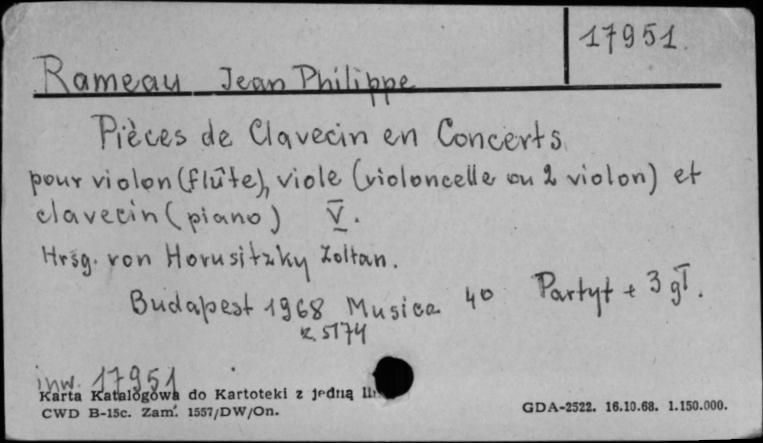 17951.
Rameau Jean Philippe
Pièces de Clavecin en Concerts
pour violon (flûte), viole (violoncelle ou 2 violon) et
clavecin (piano) V.
Hrsg. von Horusitzky Zoltan.
Budapest 1968 Musica 4o Partyt + 3 gł.
Z. 5174
inw. 17951
Karta Katalogowa do Kartoteki z jedną
CWD B-15c. Zam. 1557/DW/On.
GDA-2522. 16.10.68. 1.150.000.